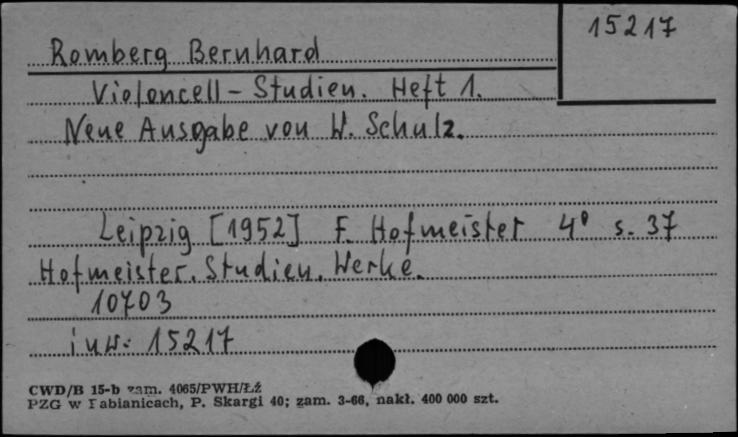 15217
Romberg Bernhard
Violoncell - Studien. Heft 1.
Neue Ausgabe von W. Schulz.
Leipzig [1952] F. Hofmeister 4° s. 37
Hofmeister. Studien. Werke.
10703
inw. 15217
CWD/B 15-b zam. 4065/PWH/ŁŻ
PZG w Pabianicach, P. Skargi 40; zam. 3-66, nakł. 400 000 szt.